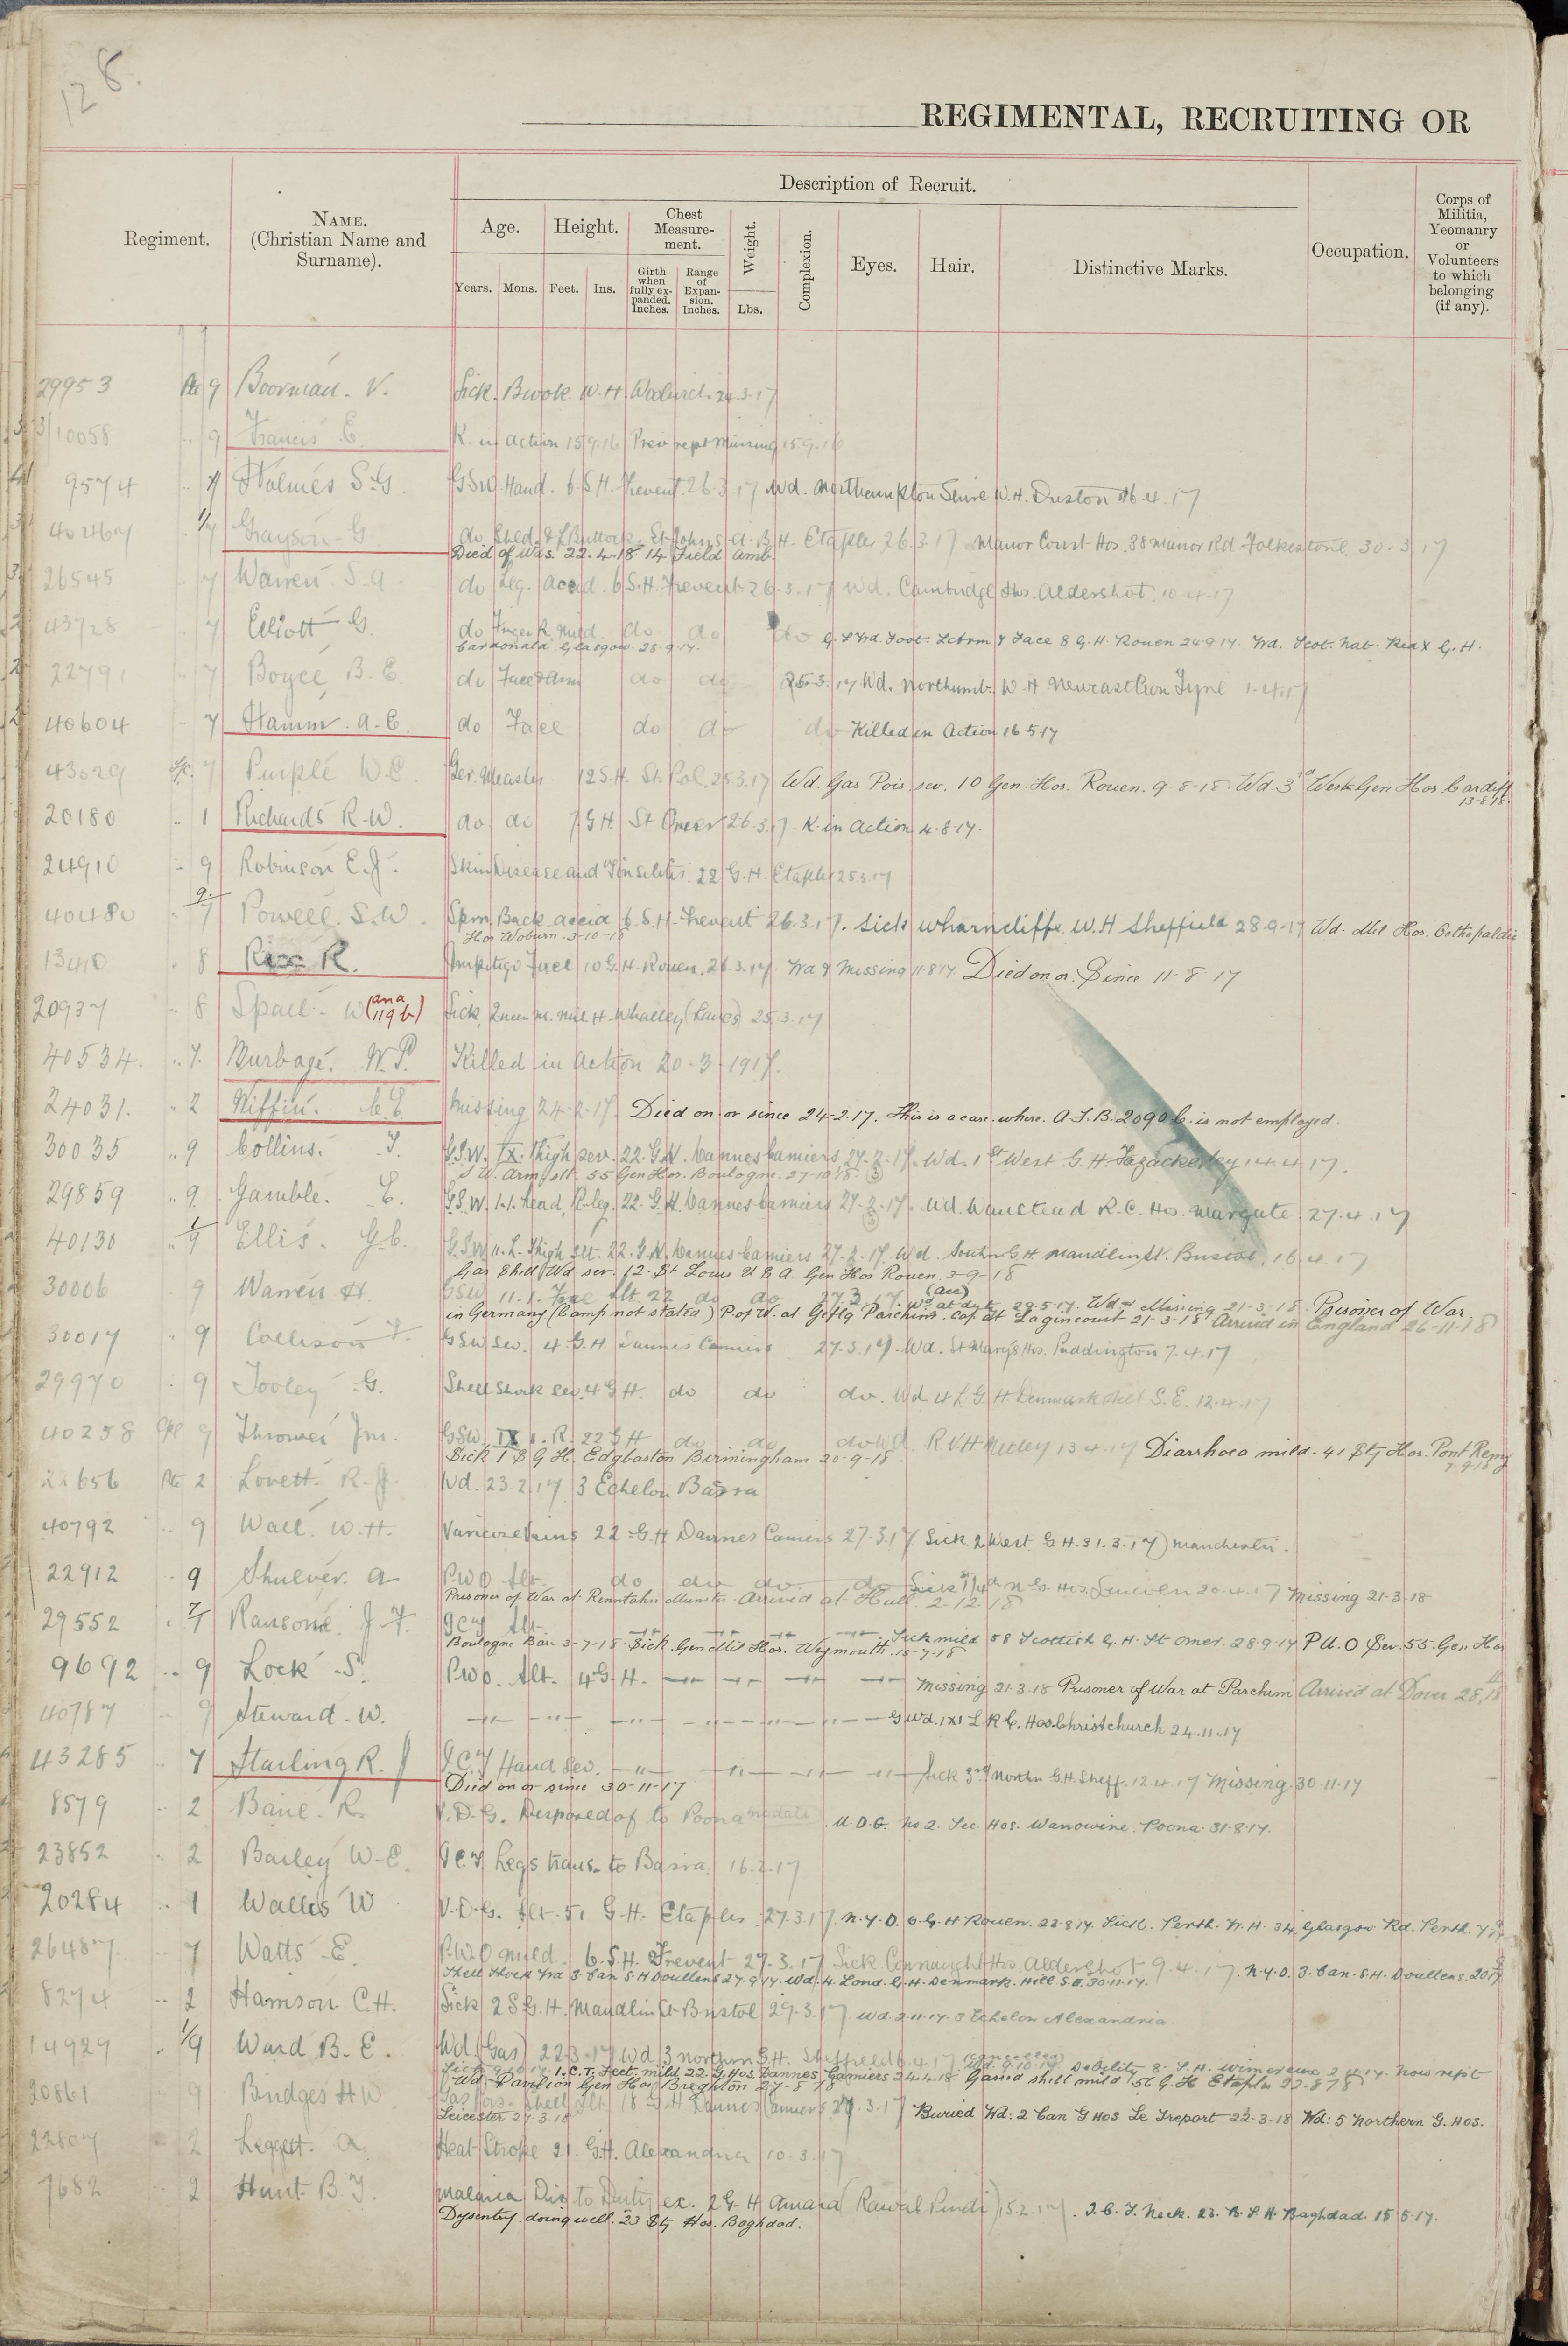 128.
REGIMENTAL, RECRUITING OR
Description of Recruit.
Regiment.
NAME.
(Christian Name and
Surname).
Age.
Height.
Chest
Measure-
ment.
Weight.
Complexion.
Eyes.
Hair.
Distinctive Marks.
Occupation.
Corps of
Militia,
Yeomanry
or
Volunteers
to which
belonging
(if any).
Years.
Mons.
Feet.
Ins.
Girth
when
fully ex-
panded.
Inches.
Range
of
Expan-
sion.
Inches.
Lbs.
29953 Pte 9 Boorman. V. Sick. Brook W.H. Woolwich 24.3.17
3/10058 .. 9 Francis E. K. in action 15.9.16 Prev rept missing 15.9.16
9574 .. 7 Holmes S.G. GSW. Hand. 6.S.H. Frevent. 26.3.17 Wd. Northampton Shire W.H. Duston 16.4.17
40467 1/7 Grayson G. do Shld. & L Buttock. St Johns A.B.H. Etaples 26.3.17 Manor Court Hos. 38 Manor Rd. Folkestone. 30.3.17
Died of Wds. 22.4.18 14 Field Amb.
26545 7 Warren S.A. do Leg. Accd. 6 S.H. Frevent 26.3.17 Wd. Cambridge Hos. Aldershot. 10.4.17
43728 7 Elliott G. do Finger R. mild. do do do G.S Wd. Foot. L. Arm & Face 8 G.H. Rouen 24.9.17. Wd. Scot. Nat. Red X G.H.
Carronata Glasgow. 28.9.17.
22791 7 Boyce B.E. do Face & Arm do do 25.3.17 Wd. Northumb. W.H. Newcastle on Tyne 1.4.17
40604 7 Hamm. A.E. do Face do do do Killed in Action 16.5.17
43029 L/c. 7 Purple W.E. Ger. Measles 12 S.H. St. Pol. 25.3.17 Wd. Gas Pois. sev. 10 Gen. Hos. Rouen. 9-8-18. Wd. 3rd West. Gen Hos. Cardiff
13.8.18.
20180 .. 1 Richards R.W. do do 7 G.H. St Omer 26.3.17. K. in Action 4.8.17.
24910 .. 9 Robinson E.J. Skin Disease and Tonsilitis 22 G.H. Etaples 25.3.17
40480 .. 9/7 Powell. S.W. Spm. Back accid 6.S.H. Frevent 26.3.17. Sick Wharncliffe W.H Sheffield 28.9.17 Wd. Mil Hos. Orthopaedic
Hos Woburn. 3-10-18
13410 . 8 Rix R. Impetigo Face 10 G.H. Rouen. 26.3.17. Wd & Missing 11.8.17. Died on or Since 11-8-17
20937 .. 8 Spall - W (ana 119b) Sick, Queen M. Mil H. Whalley (Lancs) 25.3.17
40534. .. 7. Burbage. W.P. Killed in Action 20-3-1917.
24031. .. 2 Niffin. C.E. Missing 24.2.17. Died on or since 24-2-17. This is a case where A.F.B. 2090 C. is not employed.
30035 .. 9 Collins. J. G.S.W. IX. Thigh sev. 22. G.H. Dannes Camiers 27.2.17. Wd. 1st West. G.H. Fazackerley 14.4.17.
S.W. Arm slt. 55 Gen Hos. Boulogne. 27-10-18 (3)
29859 .. 9 Gamble. E. G.S.W. 1.1. head, R. leg. 22. G.H. Dannes Camiers 27.2.17. Wd. Wanstead R.C. Hos. Margate 27.4.17
(3)
40130 .. 1/9 Ellis. G.C. G.S.W. 11. L. Thigh slt. 22. G.H. Dannes-Camiers 27.2.17. Wd. Southn G.H Maudlin St. Bristol, 16.4.17
Gas Shell Wd. sev. 12. St Louis U.S.A. Gen Hos Rouen. 3-9-18
30006 9 Warren H. GSW 11.1. Face slt. 22 do do 27.3.17 Wd at duty (acc) 29.5.17. Wd & Missing 21-3-18. Prisoner of War
in Germany (Camp not stated) P of W. at Gef/lg Parchim. Cap. at Lagincourt 21-3-18 Arrived in England 26-11-18
30017 .. 9 Collison F. GSW sev. 4. G.H Dannes Camiers 27.3.17. Wd. St Mary's Hos. Paddington 7.4.17
29970 .. 9 Tooley G. Shell Shock sev. 4 G.H. do do do. Wd 4 L.G.H Denmark Hill S.E. 12.4.17
40258 Cpl 9 Thrower Jm. GSW IX 1. R. 22 G H do do do Wd. R.V.H Netley 13.4.17 Diarrhoea mild. 41 Sty Hos. Pont Remy
Sick 1 S G H. Edgbaston Birmingham 20-9-18. 7.9.18
22656 Pte 2 Lovett. R.J. Wd. 23.2.17 3 Echelon Basra
40792 .. 9 Wall. W.H. Varicose Veins 22 G.H Dannes Camiers 27.3.17. Sick 2 West G.H. 31.3.17) Manchester.
22912 .. 9 Shulver. A PUO slt. do do do do Missing 21-3-18
Prisoner of War at Munster. Arrived at Hull 2-12-18
29552 .. 7/1 Ransome. J.F. ICT slt. Sick mild 58 Scottish G.H. St Omer. 28.9.17 P.U.O Sev. 55 Gen Hos
Boulogne Base 3-7-18. Sick Gen Mil Hos. Weymouth. 15-7-18
9692 .. 9 Lock S. PUO. Slt. 4 G.H. Missing 21-3-18 Prisoner of War at Parchim Arrived at Dover 28
40787 9 Steward. W. G Wd. 1X1 L R.C. Hos. Christchurch 24.11.17
43285 .. 7 Starling R.J ICT Hand Sev. Sick 3rd Northn G.H. Sheff. 12.4.17 Missing 30.11.17
Died on or since 30-11-17
8579 .. 2 Baile. R. V.D.G. Desposed of to Poona no date. V.D.G. No 2. Sec. Hos. Wanowrie. Poona. 31.8.17.
23852 .. 2 Bailey W.E. ICT Legs trans. to Basra. 16.2.17
20284 .. 1 Wallis W V.D.G. Slt. 51 G.H. Etaples 27.3.17. N.Y.D. 6.G.H Rouen. 22.8.17. Sick. Perth. W.H. 34 Glasgow Rd. Perth.
26487 .. 7 Watts. E. P.U.O mild. 6.S.H. Frevent 27.3.17 Sick Connaught Hos. Aldershot 9.4.17. N.Y.D. 3. Can. S.H. Doullens.
Shell Shock Wd 3 Can S.H Doullens 27.9.17. Wd. 4. Lond. G.H. Denmark. Hill S.E. 30.11.17.
8274 .. 2 Harrison C.H. Sick 2 S.G.H. Maudlin St. Bristol 29.3.17 Wd. 2.11.17. 3 Echelon Alexandria
14929 .. 1/9 Ward B.E. Wd (Gas) 22.3.17 Wd. 3 Northern G.H. Sheffield 6.4.17 (cancelled) Wd. 9.10.17. Debility 8. S.H. Wimereux 2.11.17. Now rept
Sick 9.10.17. I.C.T. Feet mild 22 G. Hos. Dannes Camiers 24.4.18 Gassed shell mild 56 G.H Etaples 22.8.18
Wd. Pavilion Gen Hos Brighton 27-8-18
20861 9 Bridges H.W Gas Pois. Shell Slt. 18 G.H Dannes Camiers 27.3.17 Buried Wd: 2 Can G Hos Le Treport 22-3-18 Wd: 5 Northern G. Hos.
Leicester 27.3.18
22807 2 Leggett. A. Heat Stroke 21. G.H. Alexandria 10.3.17
7682 2 Hunt. B.J. Malaria Dis to Duty ex. 2 G.H Amara (Rawal Pindi) 15.2.17. I.C.T. Neck. 23. B.S.H. Baghdad. 15.5.17.
Dysentry. doing well. 23 Sty Hos. Baghdad.